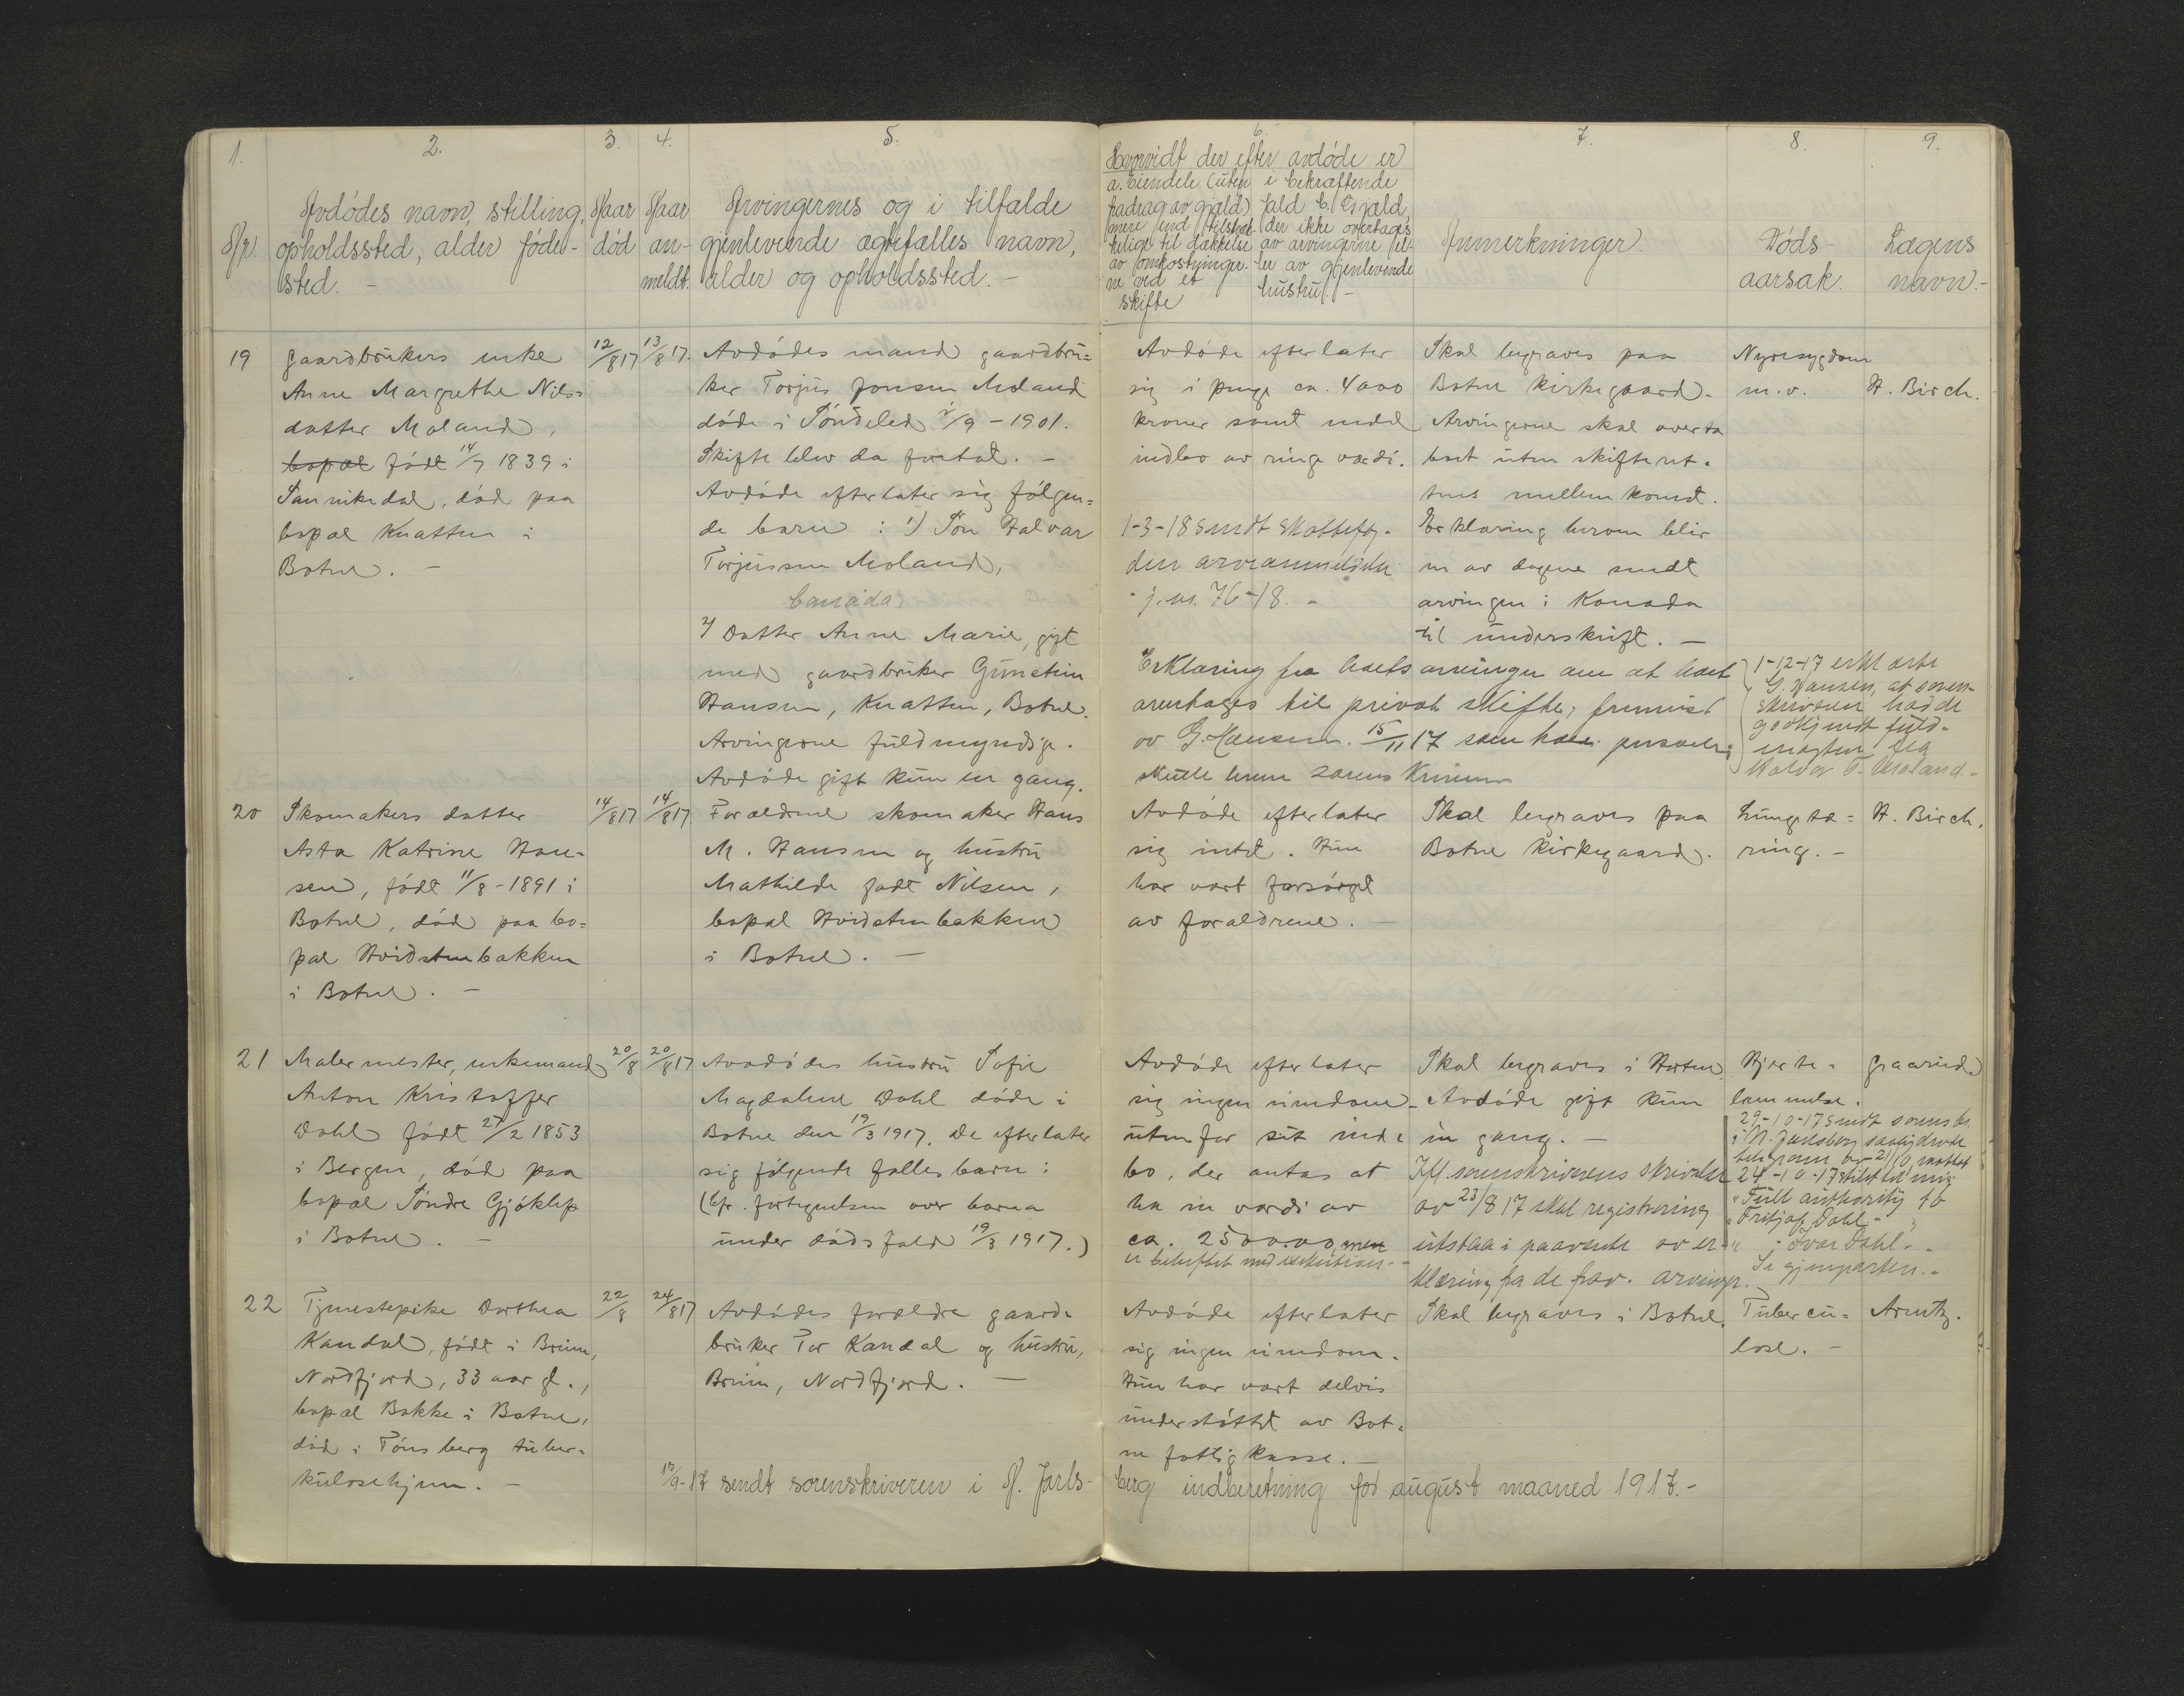 1.
2.
3.
4.
5.
Nr.
Avdödes navn, stilling,
opholdssted, alder föde-
sted. -
Naar
död
Naar
an-
meldt.
Arvingernes og i tilfælde
gjenlevende ægtefælles navn,
alder og opholdssted. -
6.
Hvorvidt der efter avdöde er
a. Eiendele (uten
fradrag av gjæld)
mere end tilstræk-
kelige til dækkelse
av omkostninger-
ne ved et
skifte
i bekræftende
fald b. Gjæld,
der ikke overtages
av arvingerne el-
ler av gjenlevende
hustru. -
7.
Anmerkninger
8.
Döds-
aarsak.
9.
Lægens
navn. -
19
gaardbrukers enke
Anne Margrethe Nils=
datter Moland,
bopæl födt 14/7 1839 i
Sannikedal, död paa
bopæl Knatten i
Botne. -
12/8 17
13/8 17.
Avdödes mand gaardbru=
ker Torjus Jonsen Moland
döde i Söndeled /9 - 1901.
Skifte blev da foretat. -
Avdöde efterlater sig fölgen=
de barn: 1) Sön Halvor
Torjussen Moland,
Canada
2) Datter Anne Marie, gift
med gaardbruker Gunstein
Hansen, Knatten, Botne.
Arvingerne fuldmyndige.
Avdöde gift kun en gang.
Avdöde efterlater
sig i penge ca. 4000
kroner samt endel
indbo av ringe værdi.
1-3-18 sendt skattefog-
den arveanmeldelse
- j. nr. 76-18. -
Skal begraves paa
Botne kirkegaard.
Arvingerne skal overta
boet uten skifteret=
tens mellemkomst.
Erklæring herom blir
en av dagene sendt
arvingen i Kanada
til underskrift. -
Erklæring fra boets arvinger om at boet
overtages til privat skifte, fremvist
av G. Hansen 15/11 17 som han personlig
skulle levere sorenskriveren
Nyresygdom
m. v.
H. Birch.
1-12-17 erklærte
G. Hansen, at soren-
skriveren hadde
godkjendt fuld-
magten fra
Halvor T. Moland. -
20
Skomakers datter
Asta Katrine Han-
sen, födt 11/8 - 1891 i
Botne, död paa bo=
pæl Hvidstenbakken
i Botne. -
14/8 17
14/8 17
Forældrene skomaker Hans
M. Hansen og hustru
Mathilde födt Nilsen,
bopæl Hvidstenbakken
i Botne. -
Avdöde efterlater
sig intet. Hun
har vært forsörget
av forældrene. -
Skal begraves paa
Botne kirkegaard.
Lungetæ=
ring. -
H. Birch.
21
Malermester, enkemand
Anton Kristoffer
Dahl födt 27/2 1853
i Bergen, död paa
bopæl Söndre Gjöklep
i Botne. -
20/8
20/8 17
Avdödes hustru Sofie
Magdalene Dahl döde i
Botne den 19/3 1917. De efterlater
sig fölgende fælles barn:
(Cfr. fortegnelsen over barna
under dödsfald 19/3 1917.)
Avdöde efterlater
sig ingen eiendom
utenfor sit inde
bo, der antas at
ha en værdi av
ca. 2500.00, men
er beheftet med exekution. -
Skal begraves i Horten.
Avdöde gift kun
en gang. -
Ifl. sorenskriverens skrivelse
av 23/8 17 skal registrering
utstaa i paavente av er-
klæring fra de frav. arvinger.
Hjerte-
lammelse.
Graarud.
29-10-17 sendt sorenskr.
i N. Jarlsberg saalydende
telegram av 21/10 mottat
24-10-17 stilet til mig:
"Full authority to
"Fritjof Dahl - "
" Ivar Dahl. -
Se gjenparten. -
22
Tjenestepike Dorthea
Kandal, födt i Breim,
Nordfjord, 33 aar gl.,
bopæl Bakke i Botne,
död i Tönsberg tuber=
kulosehjem. -
22/8
24/8 17
Avdödes forældre gaard=
bruker Tor Kandal og hustru,
Breim, Nordfjord. -
Avdöde efterlater
sig ingen eiendom.
Hun har vært delvis
understöttet av Bot=
ne fattigkasse. -
Skal begraves i Botne.
Tubercu=
lose. -
Arentz.
/9-17 sendt sorenskriveren i N. Jarls-
berg indberetning for august maaned 1917. -